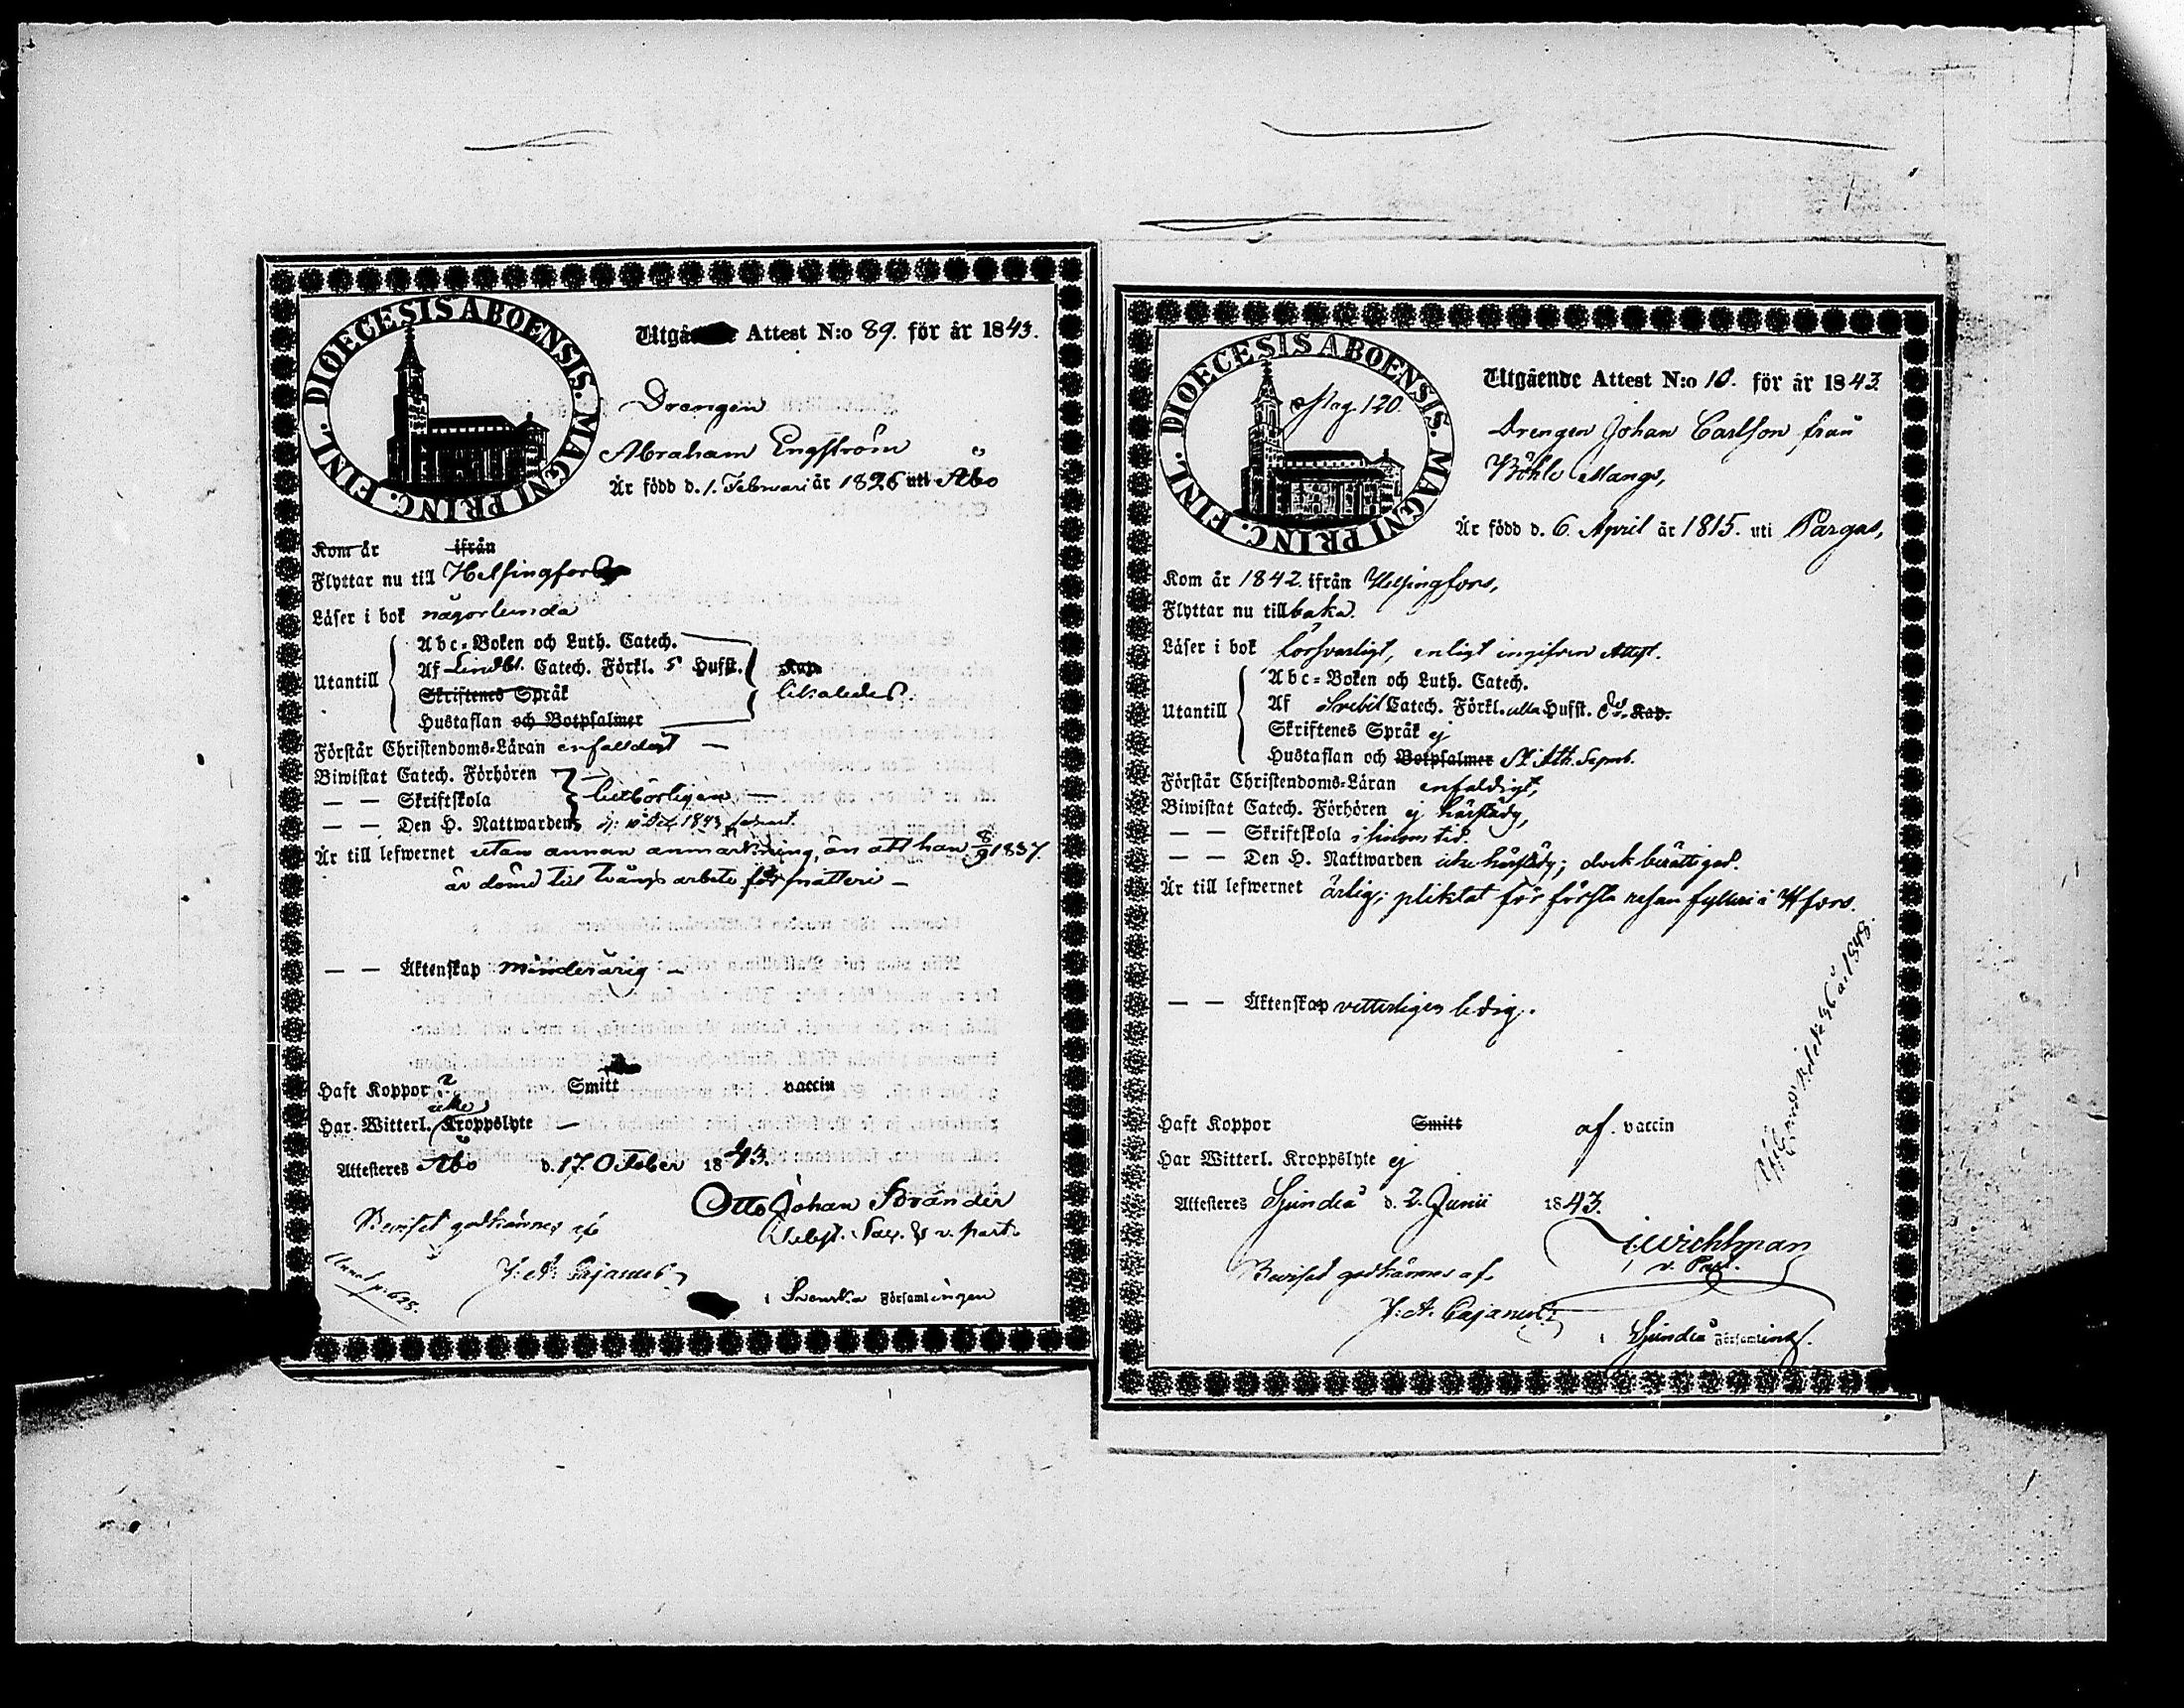 DIOECESIS ABOENSIS. MAGNI PRINC. FINL.
Utgå Attest N:o 89. för år 1843.
Drengen
Abraham Engström
Är född d. 1. Februari år 1826 uti Åbo
Kom år ifrån
Flyttar nu till Helsingfors
Läser i bok någorlunda
Utantill
Abc-Boken och Luth. Catech.
Af Lindbl. Catech. Förkl. 5 Hufst. Kap.
Skriftenes Språk likaledes.
Hustaflan och Botpsalmer
Förstår Christendoms-Läran enfalldigt —
Biwistat Catech. Förhören
— — Skriftskola behörligen —
— — Den H. Nattwarden 1843 senast.
Är till lefwernet utan annan anmärkning, än att han 8/9 1837.
är dömd till tvångs arbete för snatteri —
— — Äktenskap minderårig —
Haft Koppor ? Smitt vaccin
Har Witterl. icke Kroppslyte —
Attesteres Åbo d. 17 October 1843.
Otto Johan Brander
Beviset godkännes af
J. A. Cajanus
i Svenska Församlingen
DIOECESIS ABOENSIS. MAGNI PRINC. FINL.
Pag. 120.
Utgående Attest N:o 10. för år 1843
Drengen Johan Carlson från
Böhle Mangs,
Är född d. 6. April år 1815. uti Pargas,
Kom år 1842. ifrån Helsingfors,
Flyttar nu tillbaka.
Läser i bok försvarligt, enligt ingifven Attest.
Utantill
Abc-Boken och Luth. Catech.
Af Svebil Catech. Förkl. alla Hufst. Kap.
Skriftenes Språk ej
Hustaflan och Botpsalmer St. Ath. Symb.
Förstår Christendoms-Läran enfaldigt,
Biwistat Catech. Förhören ej härstädes,
— — Skriftskola i sinom tid.
— — Den H. Nattwarden icke härstädes; dock berättigad.
Är till lefwernet ärlig; pliktat för första resan fylleri i H:fors.
— — Äktenskap vetterligen ledig.
Haft Koppor Smitt af vaccin
Har Witterl. Kroppslyte ej
Attesteres Sjundeå d. 2. Junii 1843.
Wichlman
v. Past.
Beviset godkännes af
J. A. Cajanus
i Sjundeå Församling.